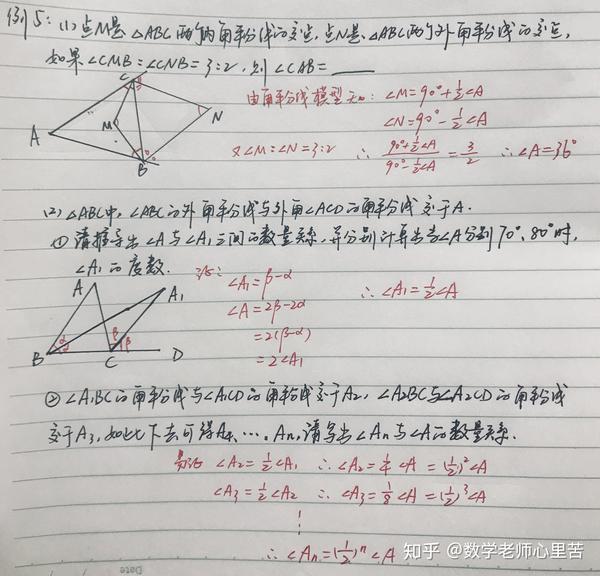 例5：(1) 点M是△ABC两个内角平分线的交点，点N是△ABC两个外角平分线的交点，
如果∠CMB：∠CNB=3：2，则∠CAB=____
由角平分线模型可知：∠M=90°+½∠A
∠N=90°-½∠A
又∠M：∠N=3：2 ∴ (90°+½∠A)/(90°-½∠A)=3/2 ∴∠A=36°
C
M
N
A
B
(2) △ABC中，∠ABC的外角平分线与外角∠ACD的角平分线交于A.
① 请推导出∠A与∠A₁之间的数量关系，并分别计算出当∠A分别70°、80°时，
∠A₁的度数.
∠A₁=β-α ∴∠A₁=½∠A
∠A=2β-2α
=2(β-α)
=2∠A₁
A
A₁
α
α
β
β
B
C
D
② ∠A₁BC的角平分线与∠A₁CD的角平分线交于A₂，∠A₂BC与∠A₂CD的角平分线
交于A₃，如此下去可得A₄、…、Aₙ，请写出∠Aₙ与∠A的数量关系.
易证 ∠A₂=½∠A₁ ∴∠A₂=¼∠A=(½)²∠A
∠A₃=½∠A₂ ∴∠A₃=⅛∠A=(½)³∠A
⋮
∴∠Aₙ=(½)ⁿ∠A
Date
知乎 @数学老师心里苦